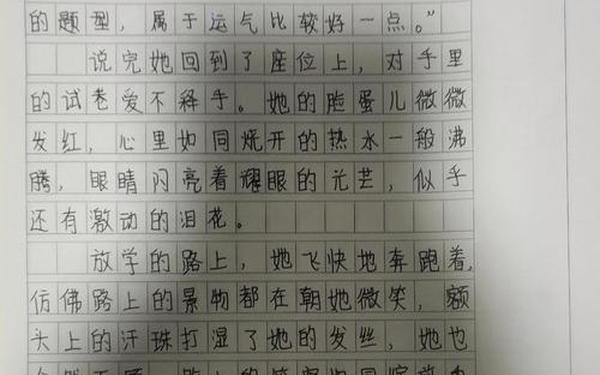 的题型，属于运气比较好一点。”
说完她回到了座位上，对手里
的试卷爱不释手。她的脸蛋儿微微
发红，心里如同烧开的热水一般沸
腾，眼睛闪亮着耀眼的光芒，似乎
还有激动的泪花。
放学的路上，她飞快地奔跑着，
仿佛路上的景物都在朝她微笑，额
头上的汗珠打湿了她的发丝，她也